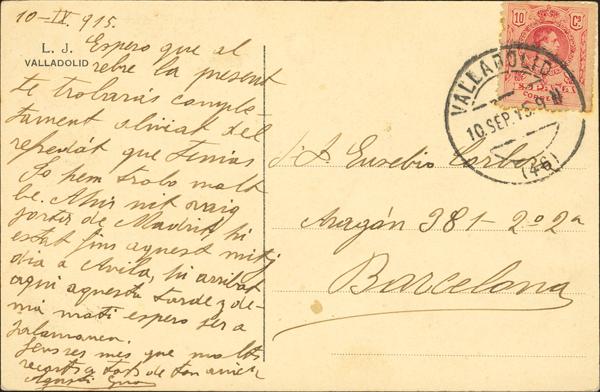 10-IX 915.
L. J.
VALLADOLID
Espero que al
rebre la present
te trobarás comple
tament aliviat del
refredát que tenias
Jo hem trobo molt
be. Ahir nit vaig
sortir de Madrit, hi
estat fins aquest mitj
dia a Avila, hi arribat
aqui aquesta tarde y de-
má matí espero ser a
Salamanca.
Senses mes que molts
recorts a tots de ton amich
Agustí
10 Cs
VALLADOLID
10.SEP.15.9
(46)
CORREOS
Dn Eusebio
Aragón 381-2º 2ª
Barcelona